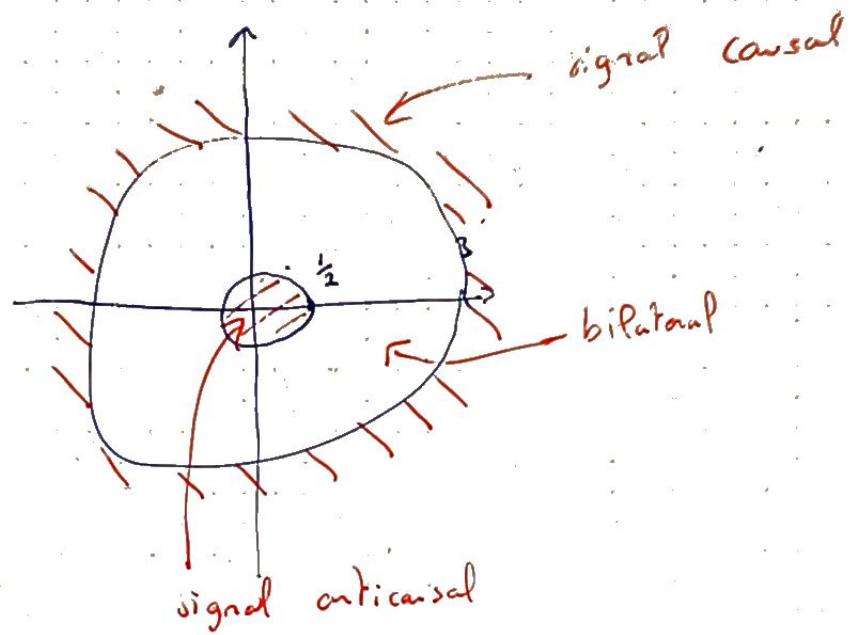 signal causal
3
1/2
bilateral
signal anticausal